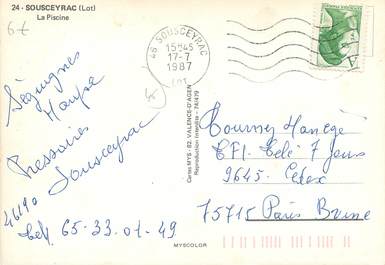 24 - SOUSCEYRAC (Lot)
La Piscine
6€
46 SOUSCEYRAC
15H45
17-7
1987
LOT
Pressoires
Sousceyrac
46190
Tel 65-33-01-49
Cartes MYS - 82. VALENCE-D'AGEN
Reproduction Interdite - 74/479
Tournez Manège
TF1. Télé 7 Jours
9645. Cedex
75715 Paris Brune
MYSCOLOR